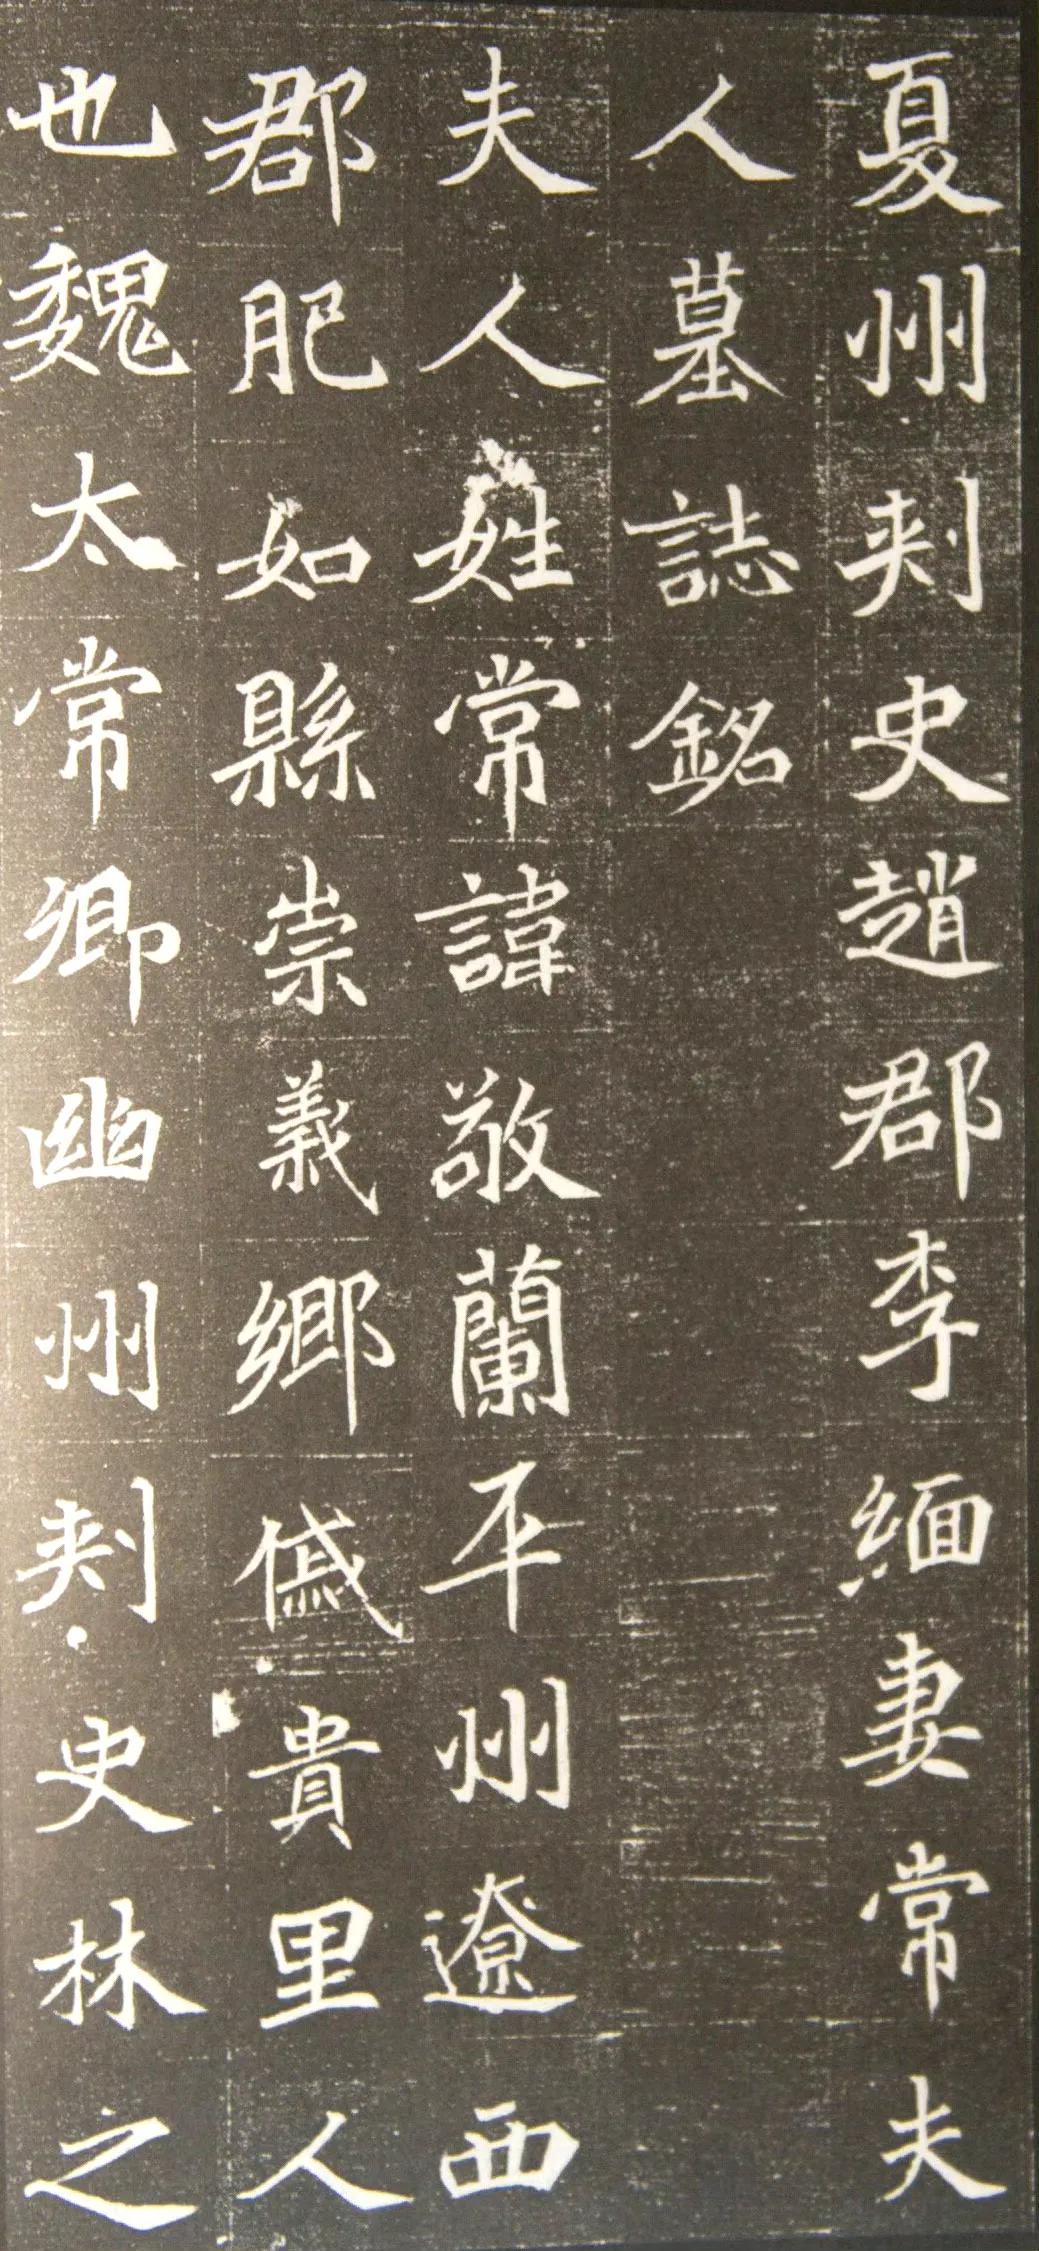 夏州刺史趙郡李緬妻常夫
人墓誌銘
夫人姓常諱敬蘭平州遼西
郡肥如縣崇義鄉戚貴里人
也魏太常卿幽州刺史林之